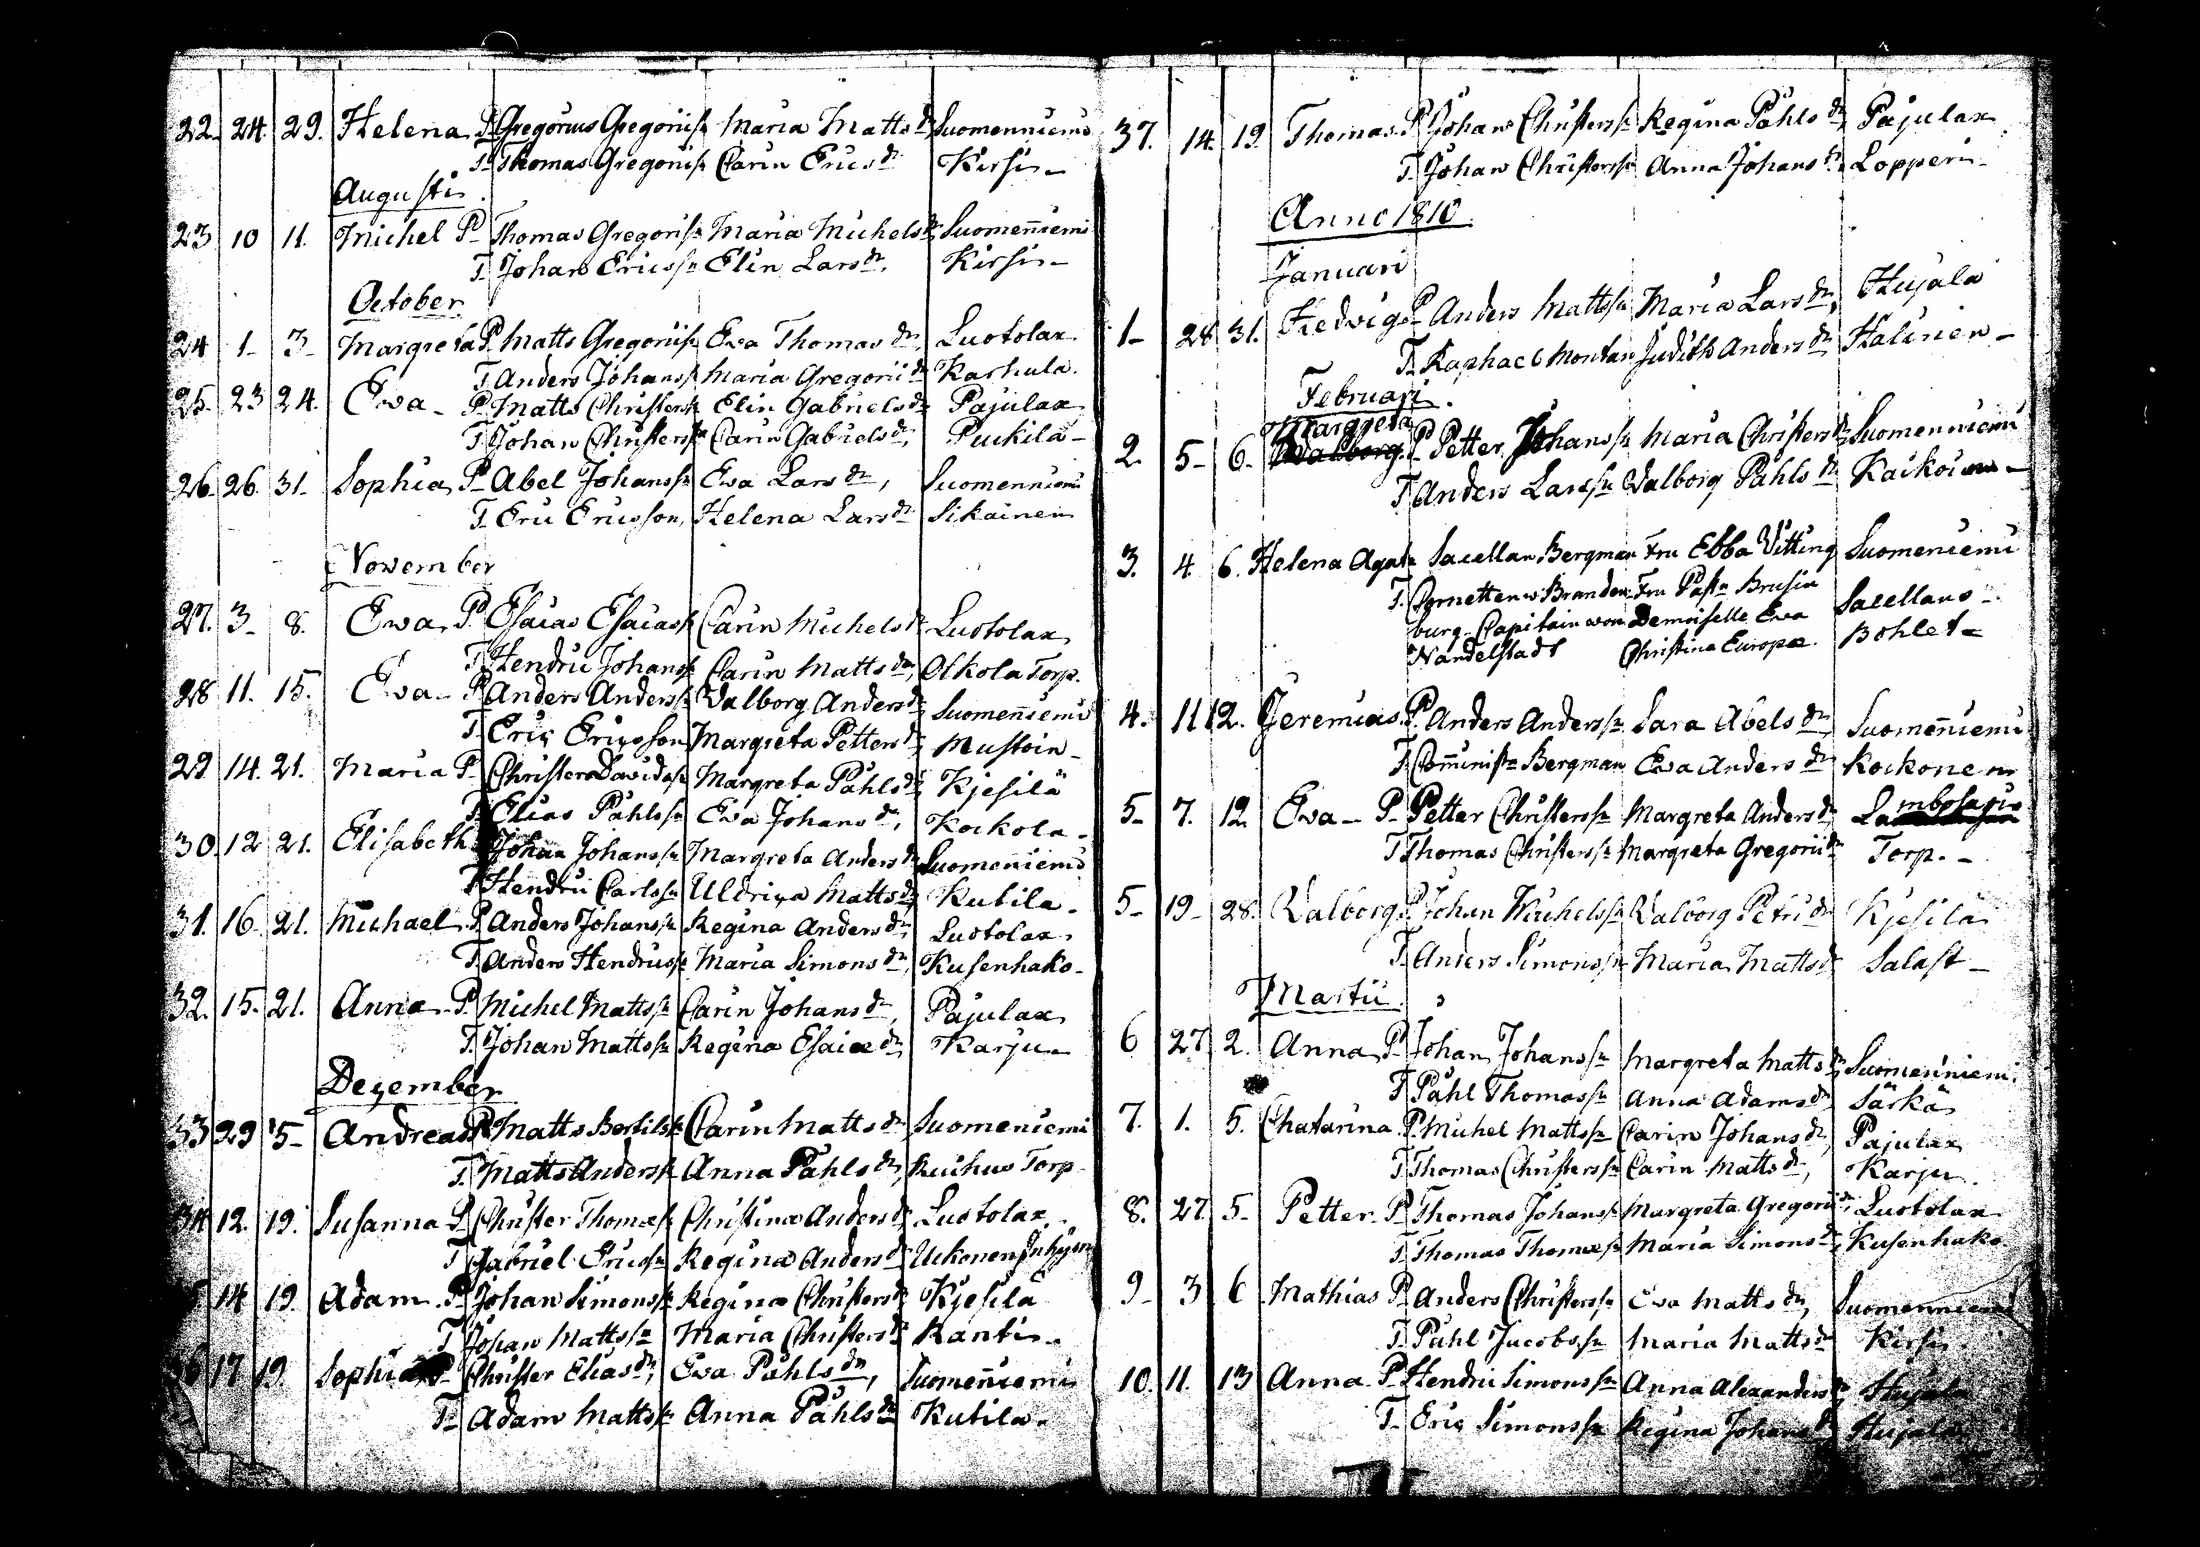 22. 24. 29. Helena P. Gregorius Gregoriiss: Maria Mattsdr Suomenniemi
T. Thomas Gregoriiss: Carin Ericsdr Kirsi
Augusti
23 10 11. Michel P. Thomas Gregoriiss: Maria Michelsdr Suomenniemi
T. Johan Ericss: Elin Larsdr, Kirsi
October
24 1 3 Margreta P. Matts Gregoriiss: Eva Thomasdr, Luotolax
T. Anders Johanss: Maria Gregoriidr Karhula.
25. 23 24. Ewa P. Matts Christerss: Elin Gabrielsdr Pajulax
T. Johan Christerss: Carin Gabrielsdr, Puikila
26. 26. 31. Sophia P. Abel Johanss: Eva Larsdr, Suomenniemi
T. Eric Ericsson, Helena Larsdr Sikainen
November
27. 3 8. Ewa P. Esaias Esaiass: Carin Michelsdr Luotolax
T. Hendric Johanss: Carin Mattsdr, Olkola Torp.
28 11. 15. Ewa P. Anders Anderss: Valborg Andersdr Suomenniemi
T. Eric Ericsson Margreta Pettersdr Mustoin
29 14. 21. Maria P. Christer Davidss: Margreta Påhlsdr Kjesilä
T. Elias Påhlss: Eva Johansdr, Kockola
30. 12 21. Elisabeth Johan Johanss: Margreta Andersdr Suomenniemi
T. Hendric Carlss: Uldrica Mattsdr Kutila
31. 16. 21. Michael P. Anders Johanss: Regina Andersdr, Luotolax
T. Anders Hendricss: Maria Simonsdr, Kusenhako
32. 15. 21. Anna P. Michel Mattss: Carin Johansdr, Pajulax
T. Johan Mattss: Regina Esaiædr, Karju
Dezember
33 29 5 Andreas P. Matts Bertilss: Carin Mattsdr Suomeniemi
T. Matts Anderss: Anna Påhlsdr, Torp
34 12. 19. Susanna P. Christer Thomæss: Christina Andersdr Luotolax
T. Gabriel Ericss: Regina Andersdr Uckonen
14 19 Adam P. Johan Simonss: Regina Christersdr Kjesilä
T. Johan Mattss: Maria Christersdr Ranti
36 17 19. Sophia P. Christer Eliasdr, Eva Påhlsdr, Suomenniemi
T. Adam Mattss: Anna Påhlsdr Kutila
37. 14. 19. Thomas P. Johan Christerss: Regina Påhlsdr, Pajulax
T. Johan Christerss: Anna Johansdr, Lopperi
Anno 1810.
Januari
1 28 31. Hedvig P. Anders Mattss: Maria Larsdr, Hujala
T. Raphael Montan Judith Andersdr Halinen
Februari.
Margreta
2. 5 6. Walborg P. Petter Johanss: Maria Christersdr Suomenniemi
T. Anders Larss: Valborg Påhlsdr Kaikoinen
3. 4 6. Helena Agata Sacellan Bergman Fru Ebba Vitting Suomeniemi
T. Cornetten w Branden- Fru Past: Brusin Sacellans
burg- Capitain won Demoiselle Eva Bohlet
Nandelstadt Christina Europæ.
4. 11 12. Jeremias P. Anders Anderss: Sara Abelsdr Suomenniemi
T. Comminist: Bergman Eva Andersdr Kockonen
5 7. 12. Eva P. Petter Christerss: Margreta Andersdr
T. Thomas Christerss: Margreta Gregoriidr Torp.
5 19 28. Valborg P. Johan Michelss: Valborg Petridr Kjesilä
T. Anders Simonss: Maria Mattsdr Salast
Martii.
6 27 2. Anna P. Johan Johanss: Margreta Mattsdr Suomenniemi
T. Påhl Thomass: Anna Adamsdr Särkä
7. 1. 5. Chatarina P. Michel Mattss: Carin Johansdr, Pajulax
T. Thomas Christerss: Carin Mattsdr, Karju
8. 27 5 Petter P. Thomas Johanss: Margreta Gregoriidr, Luotolax
T. Thomas Thomæss: Maria Simonsdr, Kusenhako
9 3 6 Mathias P. Anders Christerss: Eva Mattsdr, Suomenniemi
T. Påhl Jacobss: Maria Mattsdr Kirsi
10. 11. 13 Anna P. Hendric Simonss: Anna Alexandersdr Hujala
T. Eric Simonss: Regina Johansdr Hujala